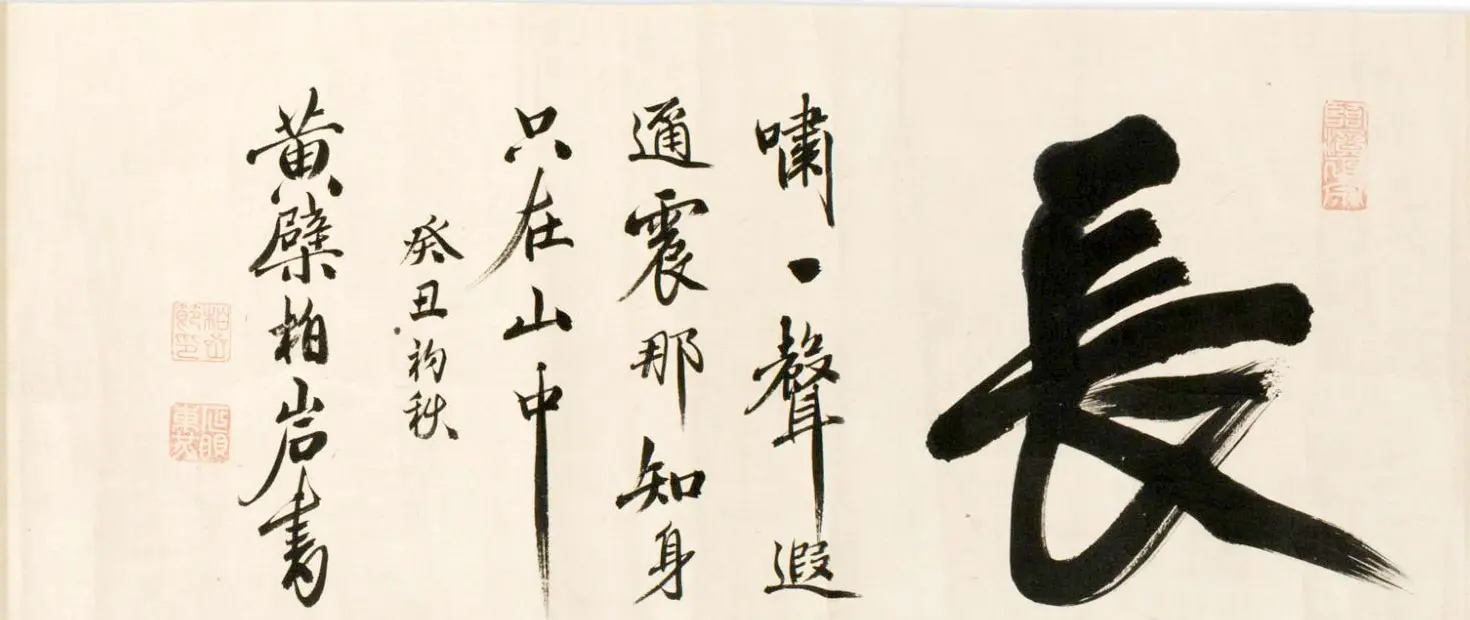 長
嘯一聲遐
通震那知身
只在山中
癸丑初秋
黄檗柏岩書
柏岩節印